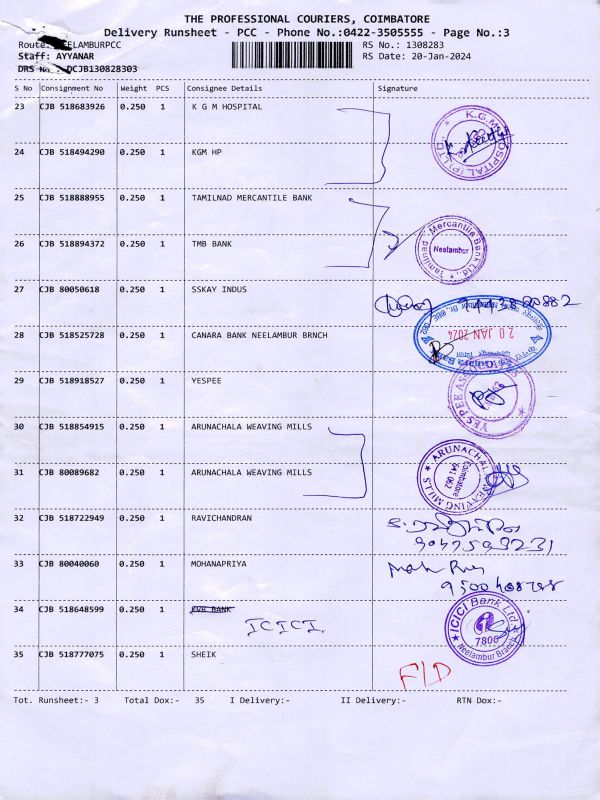 THE PROFESSIONAL COURIERS, COIMBATORE
Delivery Runsheet - PCC - Phone No.:0422-3505555 - Page No.:3
Route: ELAMBURPCC RS No.: 1308283
Staff: AYYANAR RS Date: 20-Jan-2024
DRS No. DCJB130828303
S No Consignment No Weight PCS Consignee Details Signature
23 CJB 518683926 0.250 1 K G M HOSPITAL
K.G.M HOSPITAL (P) LTD
24 CJB 518494290 0.250 1 KGM HP
25 CJB 518888955 0.250 1 TAMILNAD MERCANTILE BANK
Tamilnad Mercantile Bank Ltd.,
Neelambur
26 CJB 518894372 0.250 1 TMB BANK
27 CJB 80050618 0.250 1 SSKAY INDUS
28 CJB 518525728 0.250 1 CANARA BANK NEELAMBUR BRNCH
20 JAN 2024
29 CJB 518918527 0.250 1 YESPEE
YESPEE
30 CJB 518854915 0.250 1 ARUNACHALA WEAVING MILLS
ARUNACHALA WEAVING MILLS
Coimbatore
641 062
31 CJB 80089682 0.250 1 ARUNACHALA WEAVING MILLS
32 CJB 518722949 0.250 1 RAVICHANDRAN
33 CJB 80040060 0.250 1 MOHANAPRIYA
34 CJB 518648599 0.250 1 KVB BANK
ICICI
ICICI Bank Ltd
7806
Neelambur Branch
35 CJB 518777075 0.250 1 SHEIK
F/D
Tot. Runsheet:- 3 Total Dox:- 35 I Delivery:- II Delivery:- RTN Dox:-